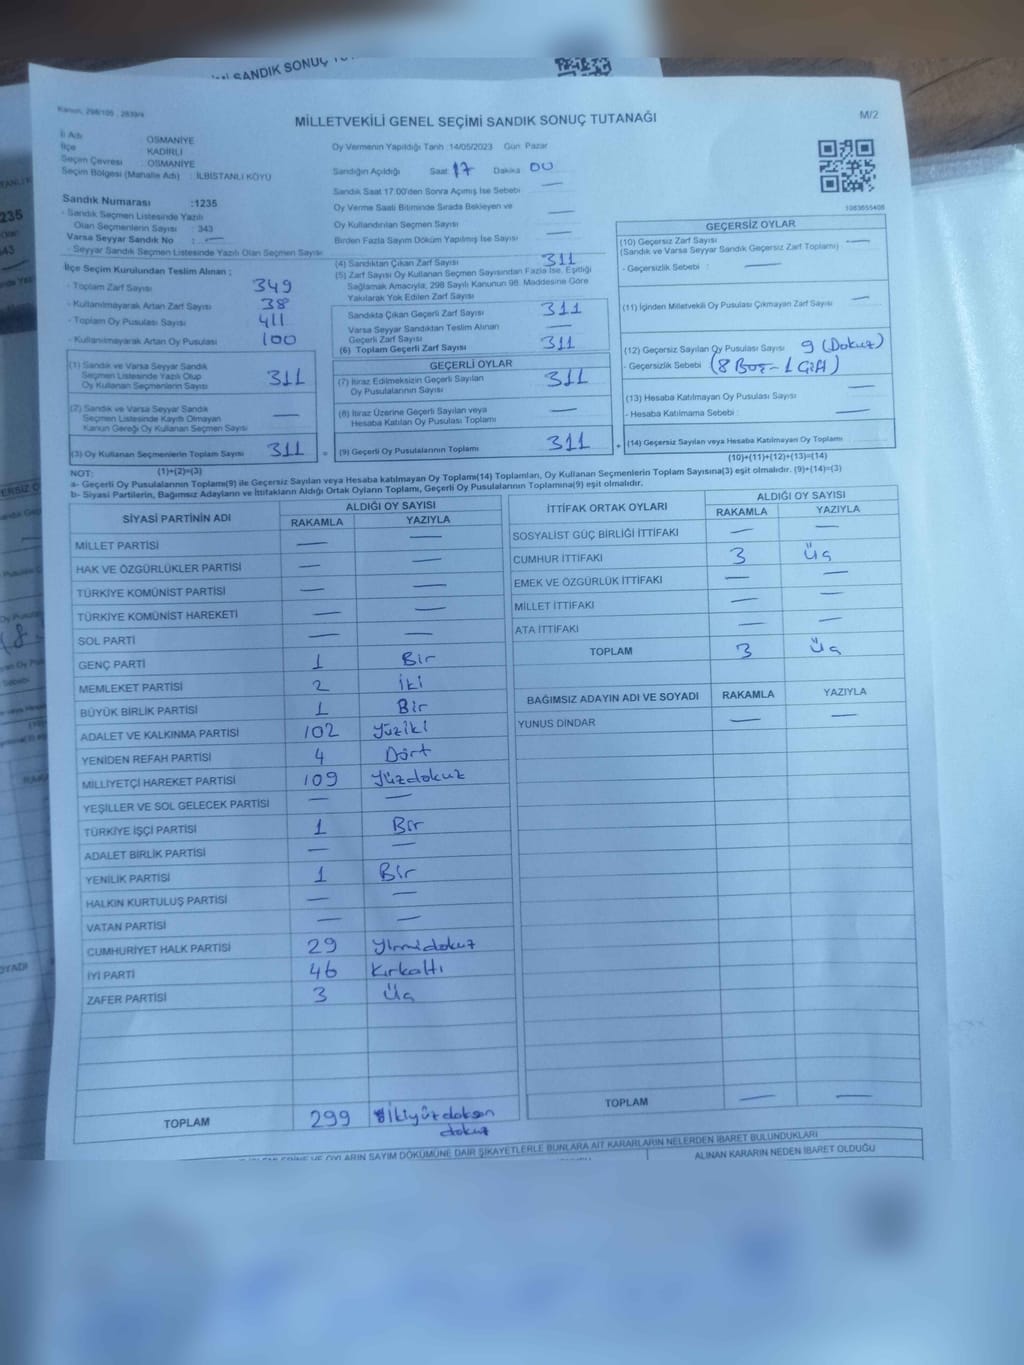 SANDIK SONUÇ
Kanun, 298/105 , 2839/4
MİLLETVEKİLİ GENEL SEÇİMİ SANDIK SONUÇ TUTANAĞI
M/2
İl Adı OSMANİYE
İlçe KADİRLİ
Seçim Çevresi : OSMANİYE
Seçim Bölgesi (Mahalle Adı) : İLBİSTANLI KÖYÜ
Oy Vermenin Yapıldığı Tarih :14/05/2023 Gün Pazar
Sandığın Açıldığı Saat 17 Dakika 00
Sandık Saat 17:00'den Sonra Açılmış İse Sebebi —
Oy Verme Saati Bitiminde Sırada Bekleyen ve
Oy Kullandırılan Seçmen Sayısı —
Birden Fazla Sayım Döküm Yapılmış İse Sayısı —
1083655406
Sandık Numarası :1235
- Sandık Seçmen Listesinde Yazılı
Olan Seçmenlerin Sayısı : 343
Varsa Seyyar Sandık No : —
- Seyyar Sandık Seçmen Listesinde Yazılı Olan Seçmen Sayısı
İlçe Seçim Kurulundan Teslim Alınan ;
- Toplam Zarf Sayısı 349
- Kullanılmayarak Artan Zarf Sayısı 38
- Toplam Oy Pusulası Sayısı 411
- Kullanılmayarak Artan Oy Pusulası 100
(1) Sandık ve Varsa Seyyar Sandık
Seçmen Listesinde Yazılı Olup
Oy Kullanan Seçmenlerin Sayısı 311
(2) Sandık ve Varsa Seyyar Sandık
Seçmen Listesinde Kayıtlı Olmayan
Kanun Gereği Oy Kullanan Seçmen Sayısı —
(3) Oy Kullanan Seçmenlerin Toplam Sayısı 311
(4) Sandıktan Çıkan Zarf Sayısı 311
(5) Zarf Sayısı Oy Kullanan Seçmen Sayısından Fazla İse, Eşitliği
Sağlamak Amacıyla, 298 Sayılı Kanunun 98. Maddesine Göre
Yakılarak Yok Edilen Zarf Sayısı
Sandıkta Çıkan Geçerli Zarf Sayısı 311
Varsa Seyyar Sandıktan Teslim Alınan
Geçerli Zarf Sayısı —
(6) Toplam Geçerli Zarf Sayısı 311
GEÇERLİ OYLAR
(7) İtiraz Edilmeksizin Geçerli Sayılan
Oy Pusulalarının Sayısı 311
(8) İtiraz Üzerine Geçerli Sayılan veya
Hesaba Katılan Oy Pusulası Toplamı —
= (9) Geçerli Oy Pusulalarının Toplamı 311
GEÇERSİZ OYLAR
(10) Geçersiz Zarf Sayısı —
(Sandık ve Varsa Seyyar Sandık Geçersiz Zarf Toplamı)
- Geçersizlik Sebebi : —
(11) İçinden Milletvekili Oy Pusulası Çıkmayan Zarf Sayısı —
(12) Geçersiz Sayılan Oy Pusulası Sayısı 9 (Dokuz)
- Geçersizlik Sebebi (8 Boş - 1 Çift)
(13) Hesaba Katılmayan Oy Pusulası Sayısı —
- Hesaba Katılmama Sebebi : —
+ (14) Geçersiz Sayılan veya Hesaba Katılmayan Oy Toplamı —
NOT: (1)+(2)=(3)
(10)+(11)+(12)+(13)=(14)
a- Geçerli Oy Pusulalarının Toplamı(9) ile Geçersiz Sayılan veya Hesaba katılmayan Oy Toplam(14) Toplamları, Oy Kullanan Seçmenlerin Toplam Sayısına(3) eşit olmalıdır. (9)+(14)=(3)
b- Siyasi Partilerin, Bağımsız Adayların ve İttifakların Aldığı Ortak Oyların Toplamı, Geçerli Oy Pusulalarının Toplamına(9) eşit olmalıdır.
SİYASİ PARTİNİN ADI ALDIĞI OY SAYISI
RAKAMLA YAZIYLA
MİLLET PARTİSİ — —
HAK VE ÖZGÜRLÜKLER PARTİSİ — —
TÜRKİYE KOMÜNİST PARTİSİ — —
TÜRKİYE KOMÜNİST HAREKETİ — —
SOL PARTİ — —
GENÇ PARTİ 1 Bir
MEMLEKET PARTİSİ 2 İki
BÜYÜK BİRLİK PARTİSİ 1 Bir
ADALET VE KALKINMA PARTİSİ 102 Yüziki
YENİDEN REFAH PARTİSİ 4 Dört
MİLLİYETÇİ HAREKET PARTİSİ 109 Yüzdokuz
YEŞİLLER VE SOL GELECEK PARTİSİ — —
TÜRKİYE İŞÇİ PARTİSİ 1 Bir
ADALET BİRLİK PARTİSİ — —
YENİLİK PARTİSİ 1 Bir
HALKIN KURTULUŞ PARTİSİ — —
VATAN PARTİSİ — —
CUMHURİYET HALK PARTİSİ 29 Yirmidokuz
İYİ PARTİ 46 Kırkaltı
ZAFER PARTİSİ 3 Üç
TOPLAM 299 İkiyüzdoksan
dokuz
İTTİFAK ORTAK OYLARI ALDIĞI OY SAYISI
RAKAMLA YAZIYLA
SOSYALİST GÜÇ BİRLİĞİ İTTİFAKI — —
CUMHUR İTTİFAKI 3 Üç
EMEK VE ÖZGÜRLÜK İTTİFAKI — —
MİLLET İTTİFAKI — —
ATA İTTİFAKI — —
TOPLAM 3 Üç
BAĞIMSIZ ADAYIN ADI VE SOYADI RAKAMLA YAZIYLA
YUNUS DİNDAR — —
TOPLAM — —
VE OYLARIN SAYIM DÖKÜMÜNE DAİR ŞİKAYETLERLE BUNLARA AİT KARARLARIN NELERDEN İBARET BULUNDUKLARI
ALINAN KARARIN NEDEN İBARET OLDUĞU